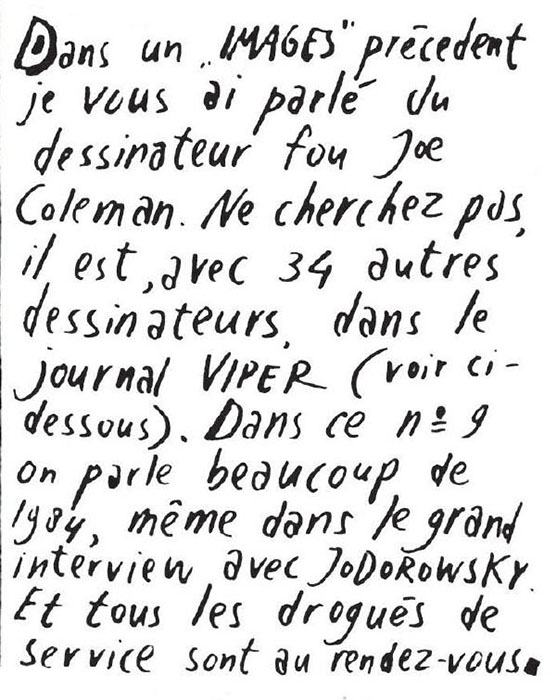 Dans un „IMAGES" précédent
je vous ai parlé du
dessinateur fou Joe
Coleman. Ne cherchez pas,
il est, avec 34 autres
dessinateurs, dans le
journal VIPER (voir ci-
dessous). Dans ce nº 9
on parle beaucoup de
1984, même dans le grand
interview avec JODOROWSKY.
Et tous les drogués de
service sont au rendez-vous.